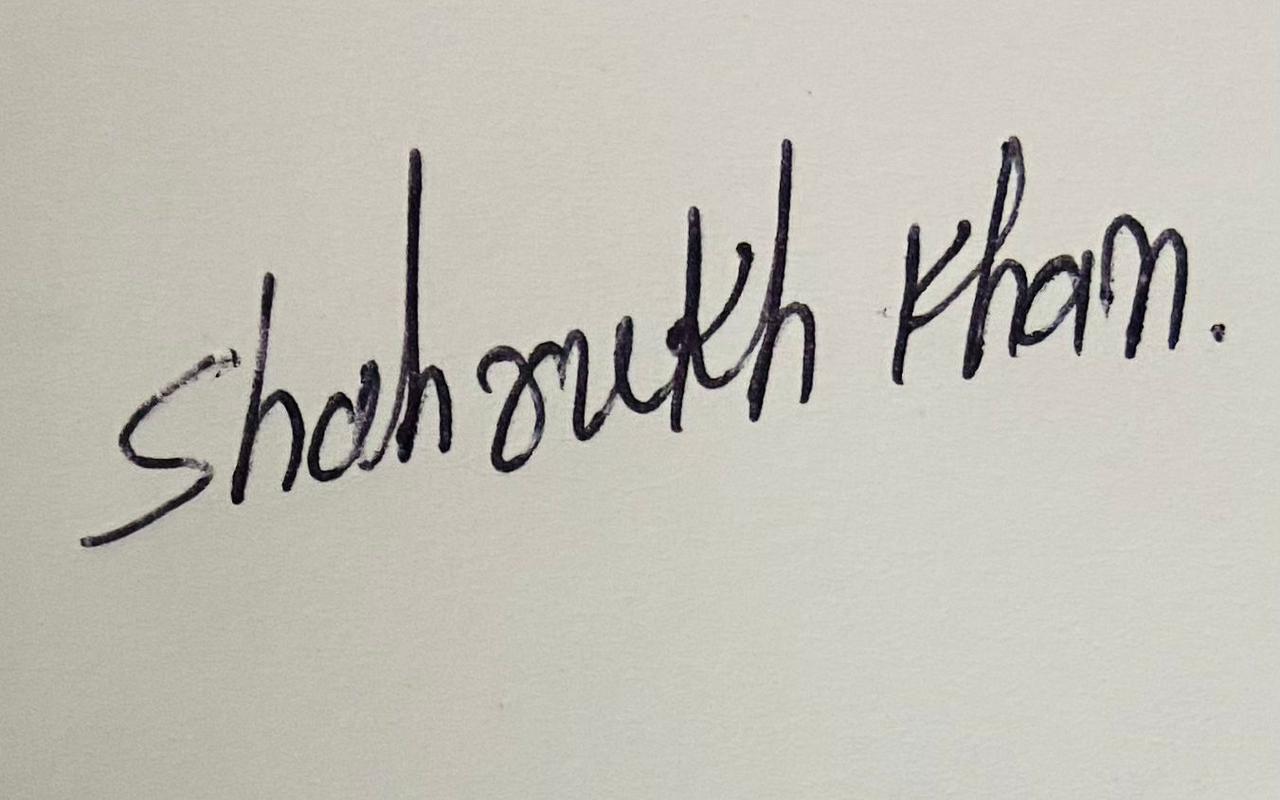 Shahrukh Khan.